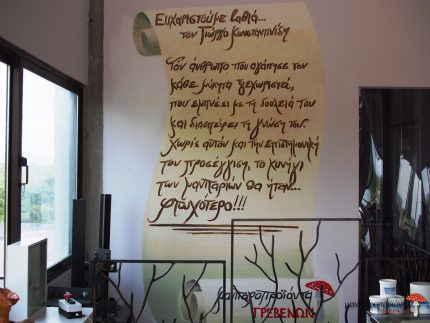 Ευχαριστούμε βαθιά...
τον Γιώργο Κωνσταντινίδη
Τον άνθρωπο που αγάπησε τον
κάθε μύκητα ξεχωριστά,
που εμπνέει με τη δουλειά του
και διασπείρει τη γνώση του.
Χωρίς αυτόν και την επιστημονική
του προσέγγιση, το κυνήγι
των μανιταριών θα ήταν...
φτωχότερο!!!
μανιταροπροϊόντα
ΓΡΕΒΕΝΩΝ